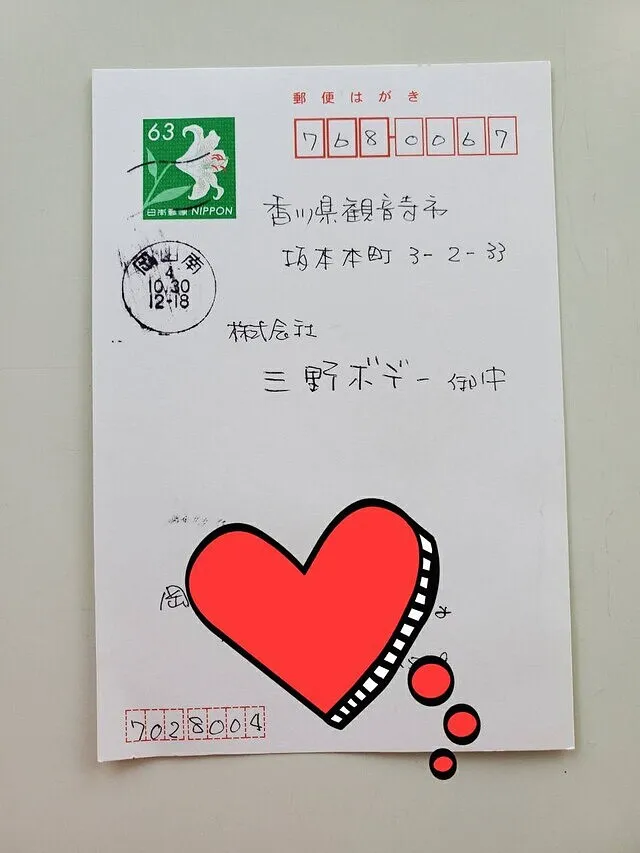 郵便はがき
768-0067
63
日本郵便 NIPPON
香川県観音寺市
坂本本町 3-2-33
岡山南
4
10.30
12-18
株式会社
三野ボデー 御中
岡
7028004